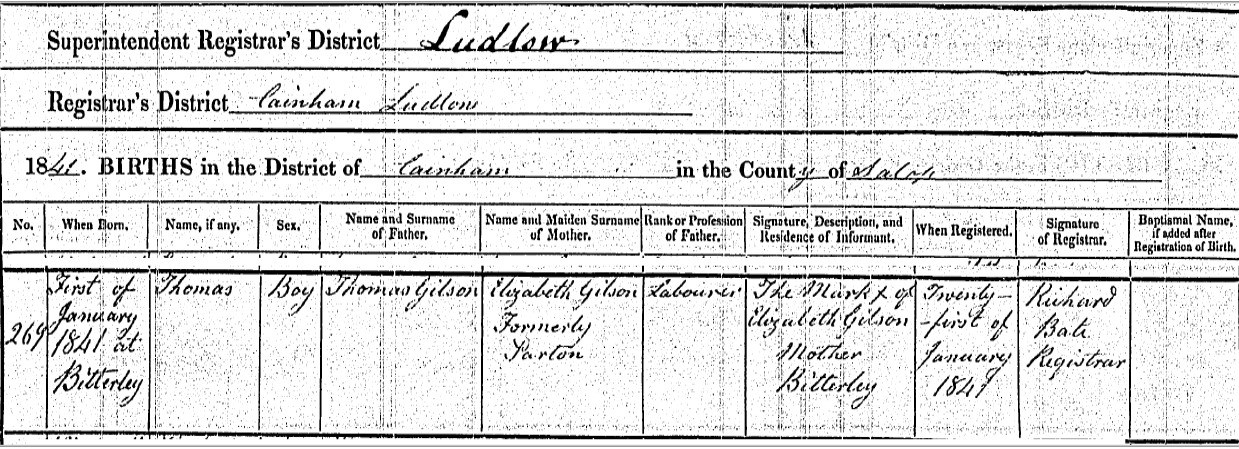 Superintendent Registrar's District Ludlow
Registrar's District Cainham Ludlow
1841. BIRTHS in the District of Cainham in the County of Salop
No. When Born. Name, if any. Sex. Name and Surname of Father. Name and Maiden Surname of Mother. Rank or Profession of Father. Signature, Description, and Residence of Informant. When Registered. Signature of Registrar. Baptismal Name, if added after Registration of Birth.
269 First of January 1841 at Bitterley Thomas Boy Thomas Gilson Elizabeth Gilson Formerly Parton Labourer The Mark x of Elizabeth Gilson Mother Bitterley Twenty-first of January 1841 Richard Bate Registrar